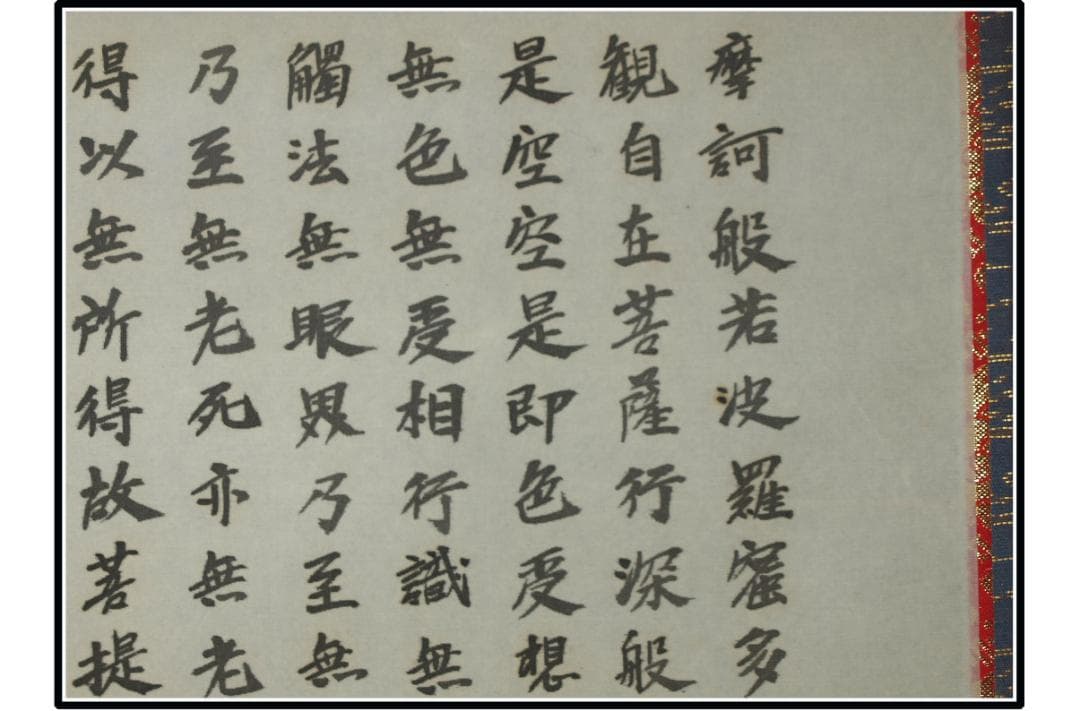 摩訶般若波羅蜜多
観自在菩薩行深般
是空空是即色受想
無色無受相行識無
觸法無眼界乃至無
乃至無老死亦無老
得以無所得故菩提